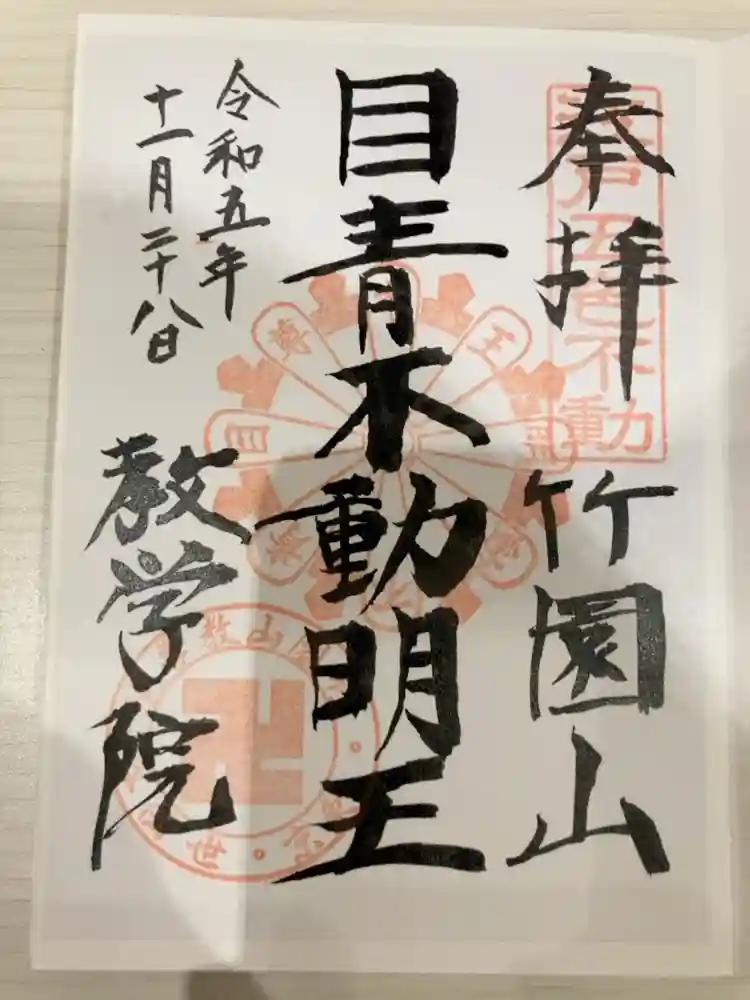 奉拝
竹園山
江戸五色不動
目青不動明王
令和五年
十一月二十八日
教学院